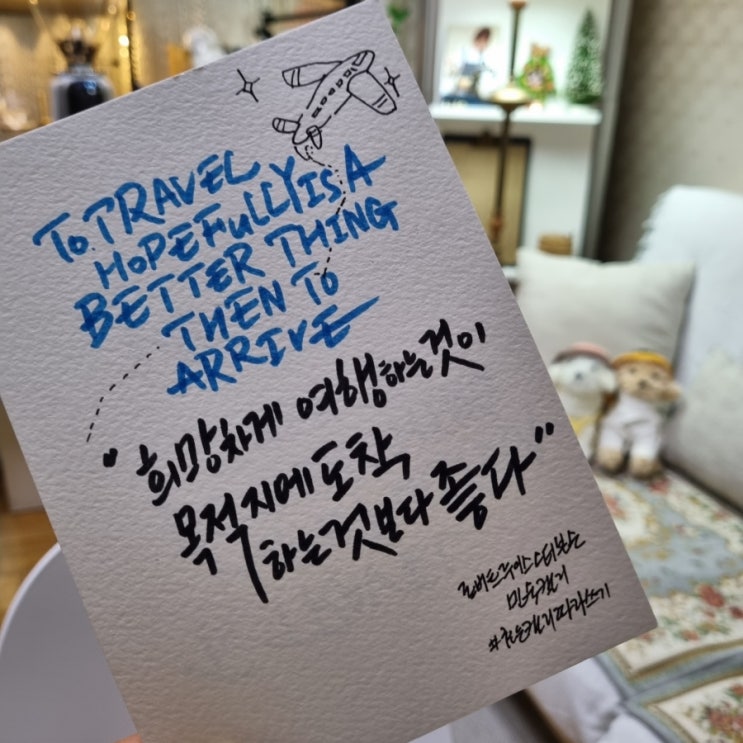 TO TRAVEL
HOPEFULLY IS A
BETTER THING
THEN TO
ARRIVE
"희망차게 여행하는것이
목적지에 도착
하는것보다 좋다"
로버트루이스스티븐슨
민속캘리
따라쓰기